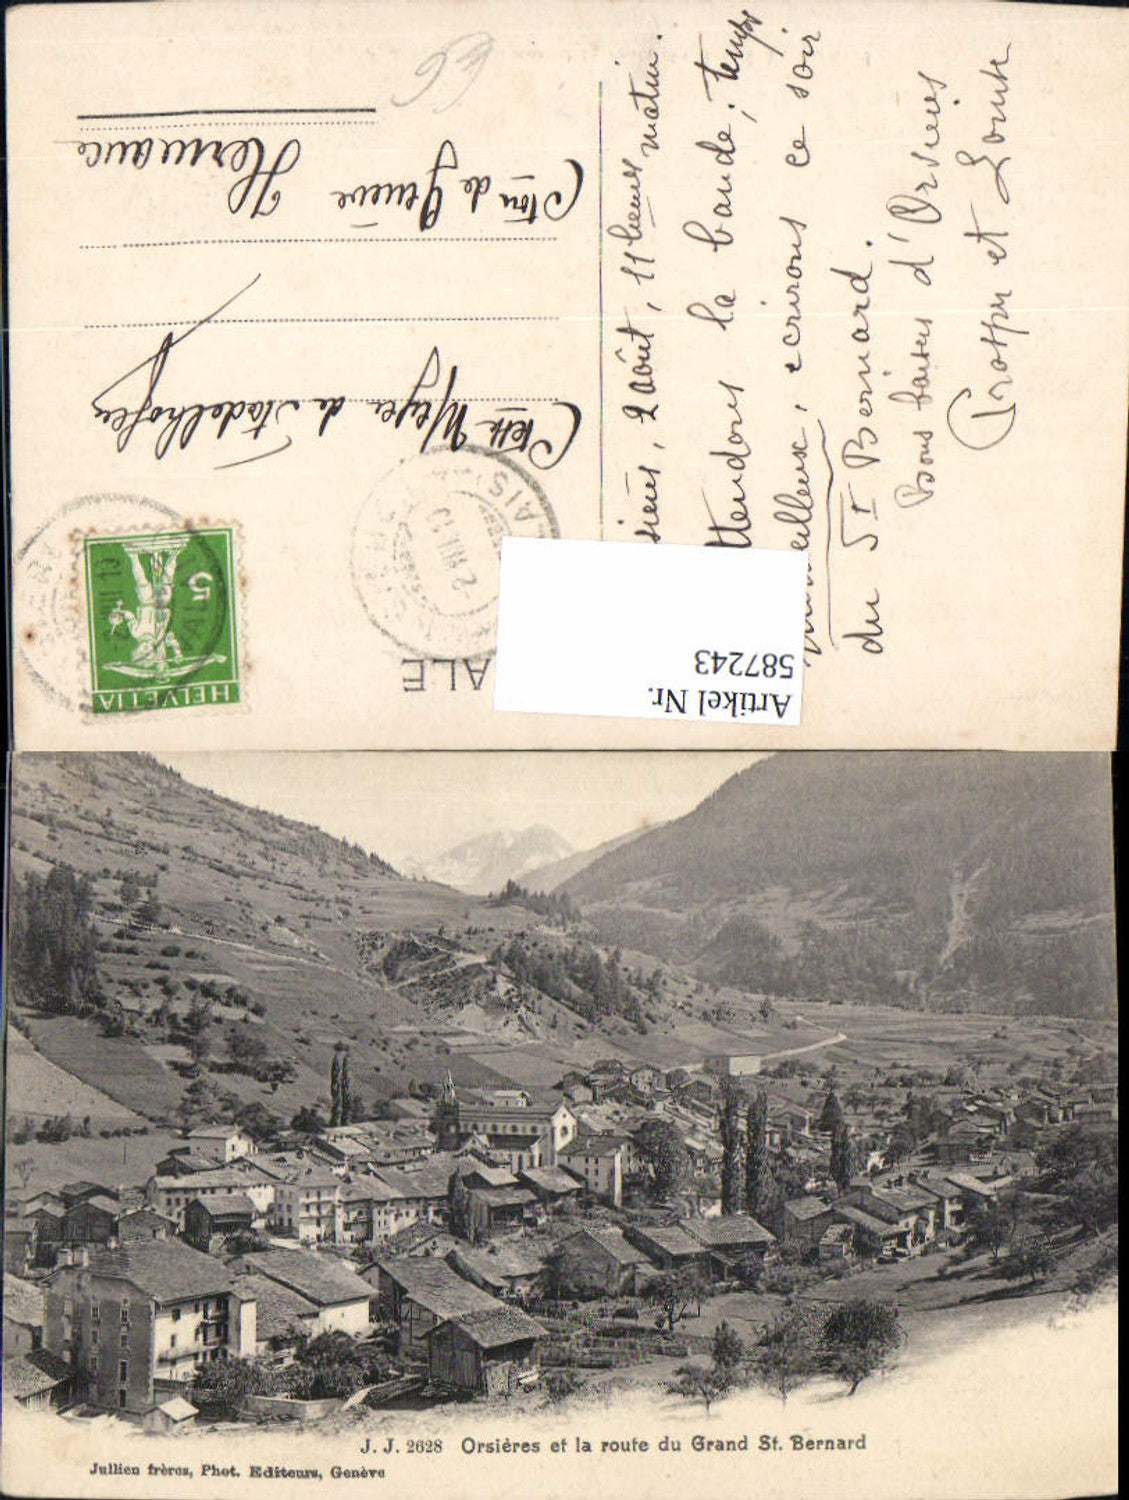 HELVETIA
5
VALAIS
-2.VIII.10
ALE
Artikel Nr.
587243
Meyer de Stadelhofen
Cton de Genève
Hermance
2 août, 11 heures matin.
la bande; temps
écrirons ce soir
du St Bernard.
Bons baisers d'Orsières
Prosper et Louise
J. J. 2628 Orsières et la route du Grand St. Bernard
Jullien frères, Phot. Editeurs, Genève